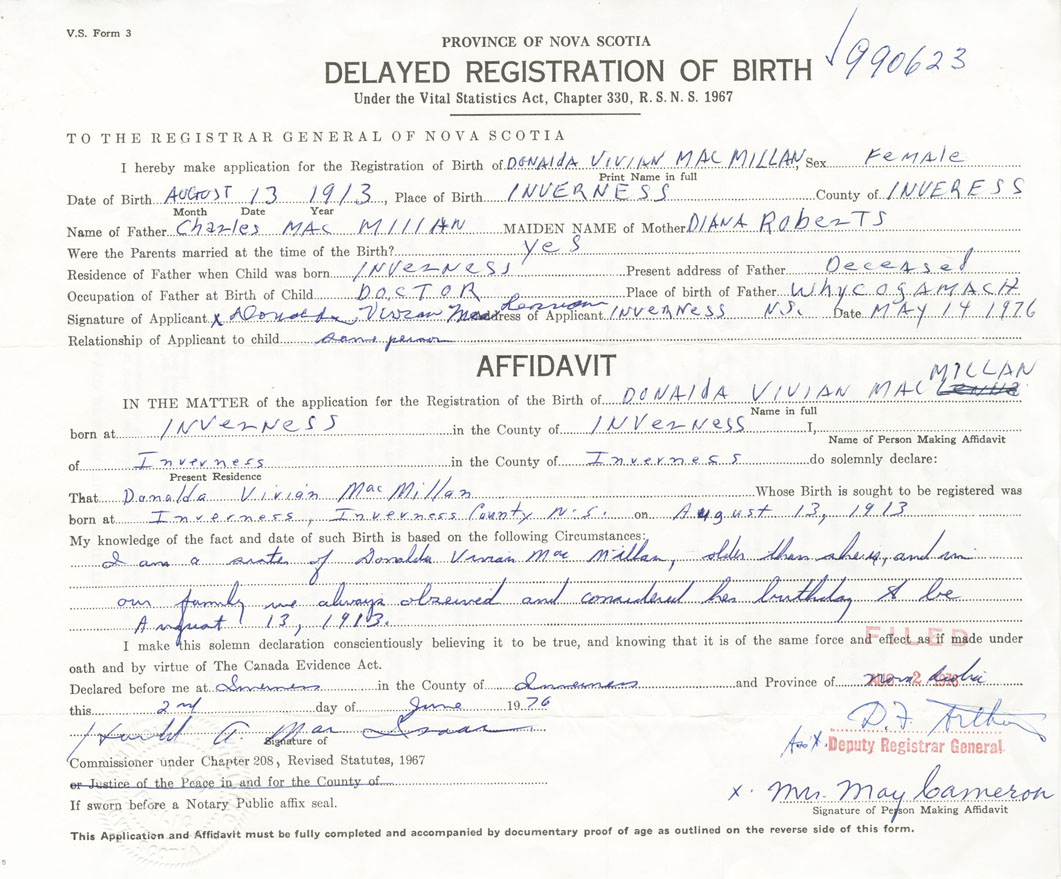 V.S. Form 3
PROVINCE OF NOVA SCOTIA
DELAYED REGISTRATION OF BIRTH
990623
Under the Vital Statistics Act, Chapter 330, R.S.N.S. 1967
TO THE REGISTRAR GENERAL OF NOVA SCOTIA
I hereby make application for the Registration of Birth of DONAlDA VIVIAN MAC MILLAN, Sex FeMAle
Print Name in full
Date of Birth AUGUST 13 1913, Place of Birth INVERNESS County of INVERESS
Month Date Year
Name of Father Charles MAC MIllAN MAIDEN NAME of Mother DIANA RobeRTS
Were the Parents married at the time of the Birth? yes
Residence of Father when Child was born INVERNESS Present address of Father Deceased
Occupation of Father at Birth of Child DOCTOR Place of birth of Father WhyCOGAMACH
Signature of Applicant x Donalda Vivian Address of Applicant INVERNESS N.S. Date MAY 14 1976
Relationship of Applicant to child same person
AFFIDAVIT
IN THE MATTER of the application for the Registration of the Birth of DONAlDA VIVIAN MAC MILLAN
Name in full
born at INVERNESS in the County of INVERNESS I,
Name of Person Making Affidavit
of Inverness in the County of Inverness do solemnly declare:
Present Residence
That Donalda Vivian Mac Millan Whose Birth is sought to be registered was
born at Inverness, Inverness County N.S. on August 13, 1913
My knowledge of the fact and date of such Birth is based on the following Circumstances:
I am a sister of Donalda Vivian Mac Millan, older than she is, and in
our family we always observed and considered her birthday to be
August 13, 1913.
I make this solemn declaration conscientiously believing it to be true, and knowing that it is of the same force and effect as if made under
FILED
oath and by virtue of The Canada Evidence Act.
Declared before me at Inverness in the County of Inverness and Province of Nova Scotia
this 2nd day of June 1976
D.F. Arthur
Ass't. Deputy Registrar General
A. Mac Isaac
Signature of
Commissioner under Chapter 208, Revised Statutes, 1967
or Justice of the Peace in and for the County of
x. Mrs. May Cameron
If sworn before a Notary Public affix seal.
Signature of Person Making Affidavit
This Application and Affidavit must be fully completed and accompanied by documentary proof of age as outlined on the reverse side of this form.